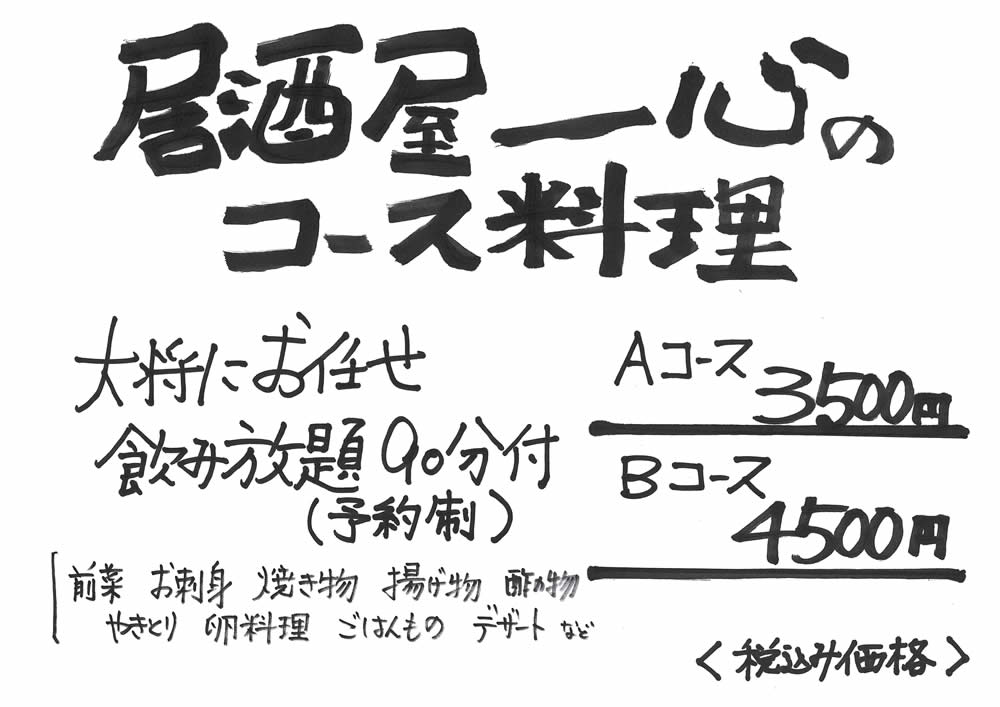 居酒屋一心の
コース料理
大将にお任せ
飲み放題90分付
(予約制)
前菜 お刺身 焼き物 揚げ物 酢の物
やきとり 卵料理 ごはんもの デザート など
Aコース
3500円
Bコース
4500円
<税込み価格>